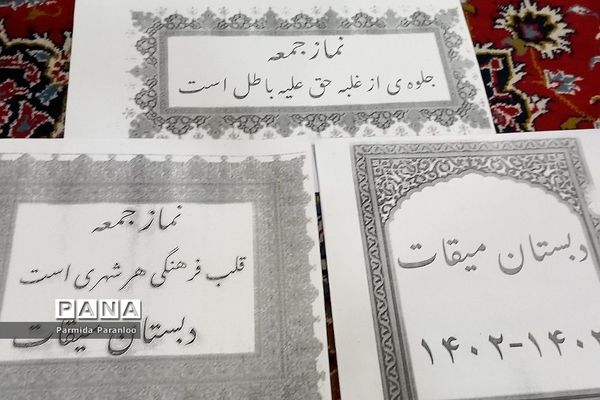 نماز جمعه
جلوه ی از غلبه حق علیه باطل است
نماز جمعه
قلب فرهنگی هر شهری است
دبستان میقات
PANA
Parmida Paranloo
دبستان میقات
۱۴۰۲-۱۴۰۲